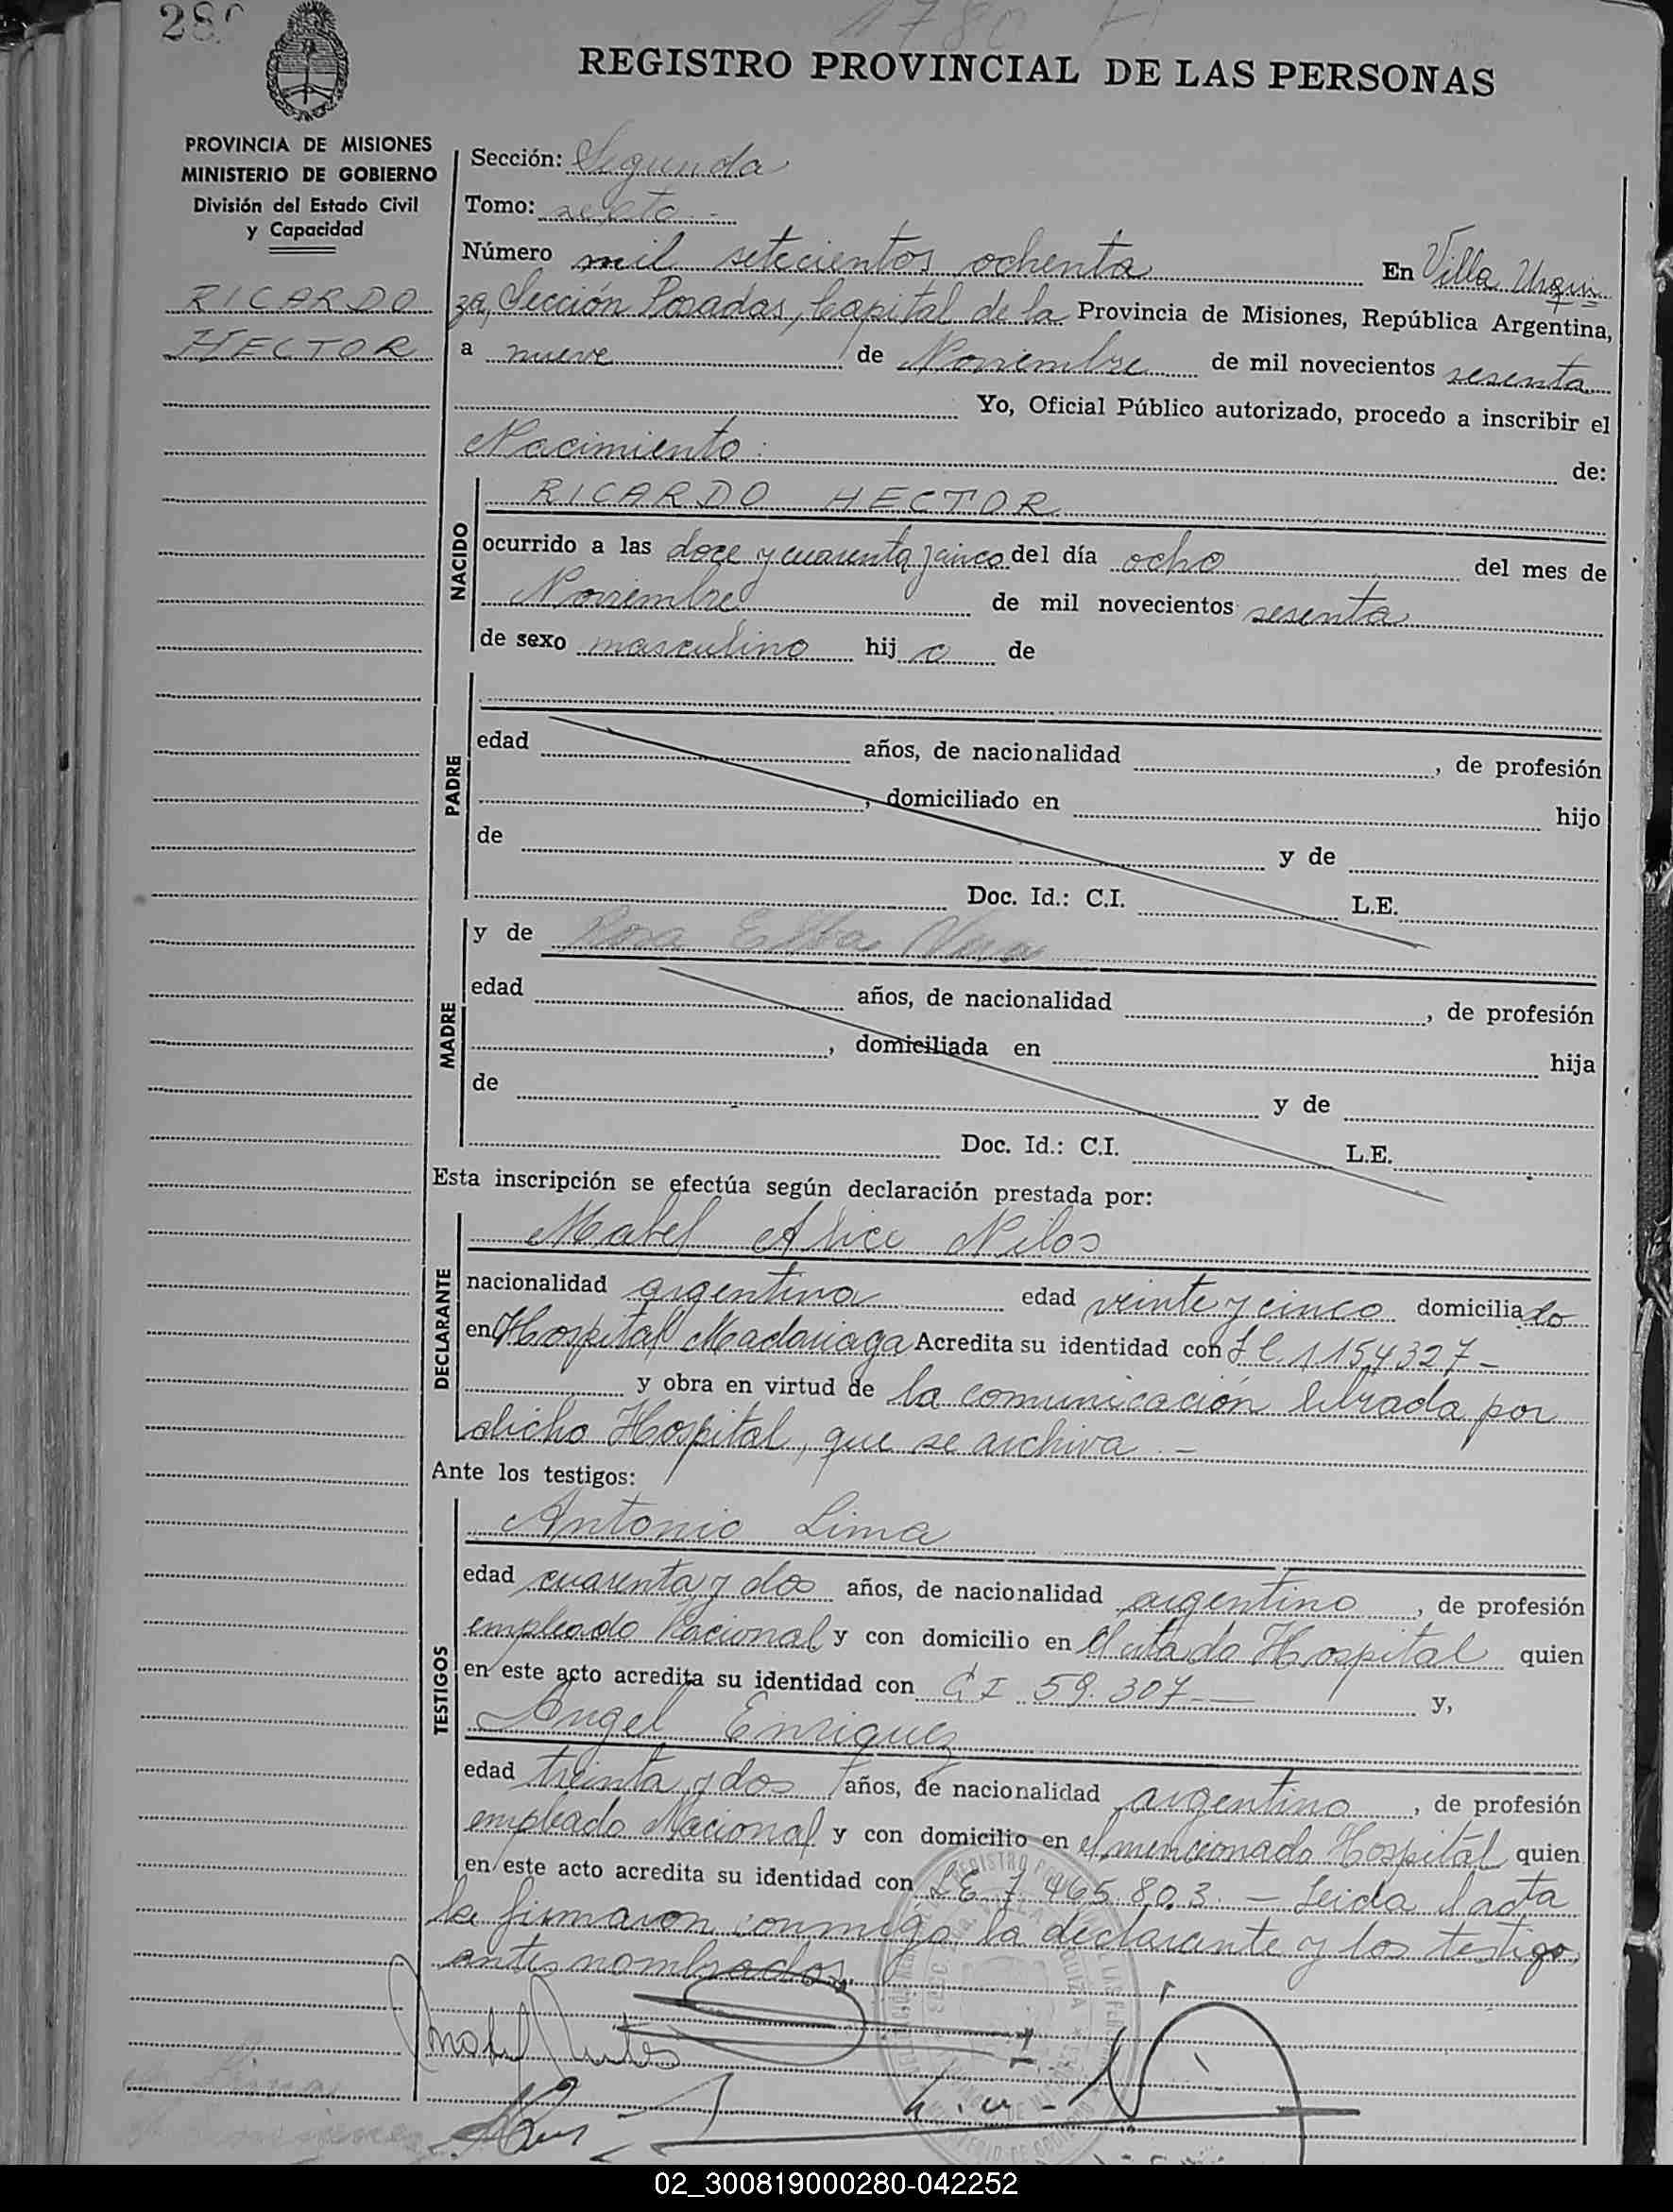 1780
REGISTRO PROVINCIAL DE LAS PERSONAS
PROVINCIA DE MISIONES
MINISTERIO DE GOBIERNO
División del Estado Civil
y Capacidad
RICARDO
HECTOR
Sección: Segunda
Tomo: sexto
Número mil setecientos ochenta En Villa Urqui
za, Sección Posadas, Capital de la Provincia de Misiones, República Argentina,
a nueve de Noviembre de mil novecientos sesenta
Yo, Oficial Público autorizado, procedo a inscribir el
Nacimiento de:
NACIDO
RICARDO HECTOR
ocurrido a las doce y cuarenta y cinco del día ocho del mes de
Noviembre de mil novecientos sesenta
de sexo masculino hij o de
PADRE
edad años, de nacionalidad , de profesión
, domiciliado en hijo
de y de
Doc. Id.: C.I. L.E.
MADRE
y de Rosa Elba
edad años, de nacionalidad , de profesión
, domiciliada en hija
de y de
Doc. Id.: C.I. L.E.
Esta inscripción se efectúa según declaración prestada por:
DECLARANTE
Mabel Alice Nilos
nacionalidad argentina edad veinte y cinco domicilia do
en Hospital Madariaga Acredita su identidad con L C 1154327-
y obra en virtud de la comunicación librada por
dicho Hospital, que se archiva.-
Ante los testigos:
TESTIGOS
Antonio Lima
edad cuarenta y dos años, de nacionalidad argentino, de profesión
empleado Nacional y con domicilio en el citado Hospital quien
en este acto acredita su identidad con C I 59.307- y,
Angel Enriquez
edad treinta y dos años, de nacionalidad argentino, de profesión
empleado Nacional y con domicilio en el mencionado Hospital quien
en este acto acredita su identidad con L E 7.465.803.- Leida el acta
la firmaron conmigo la declarante y los testigos
antes nombrados.
02_300819000280-042252